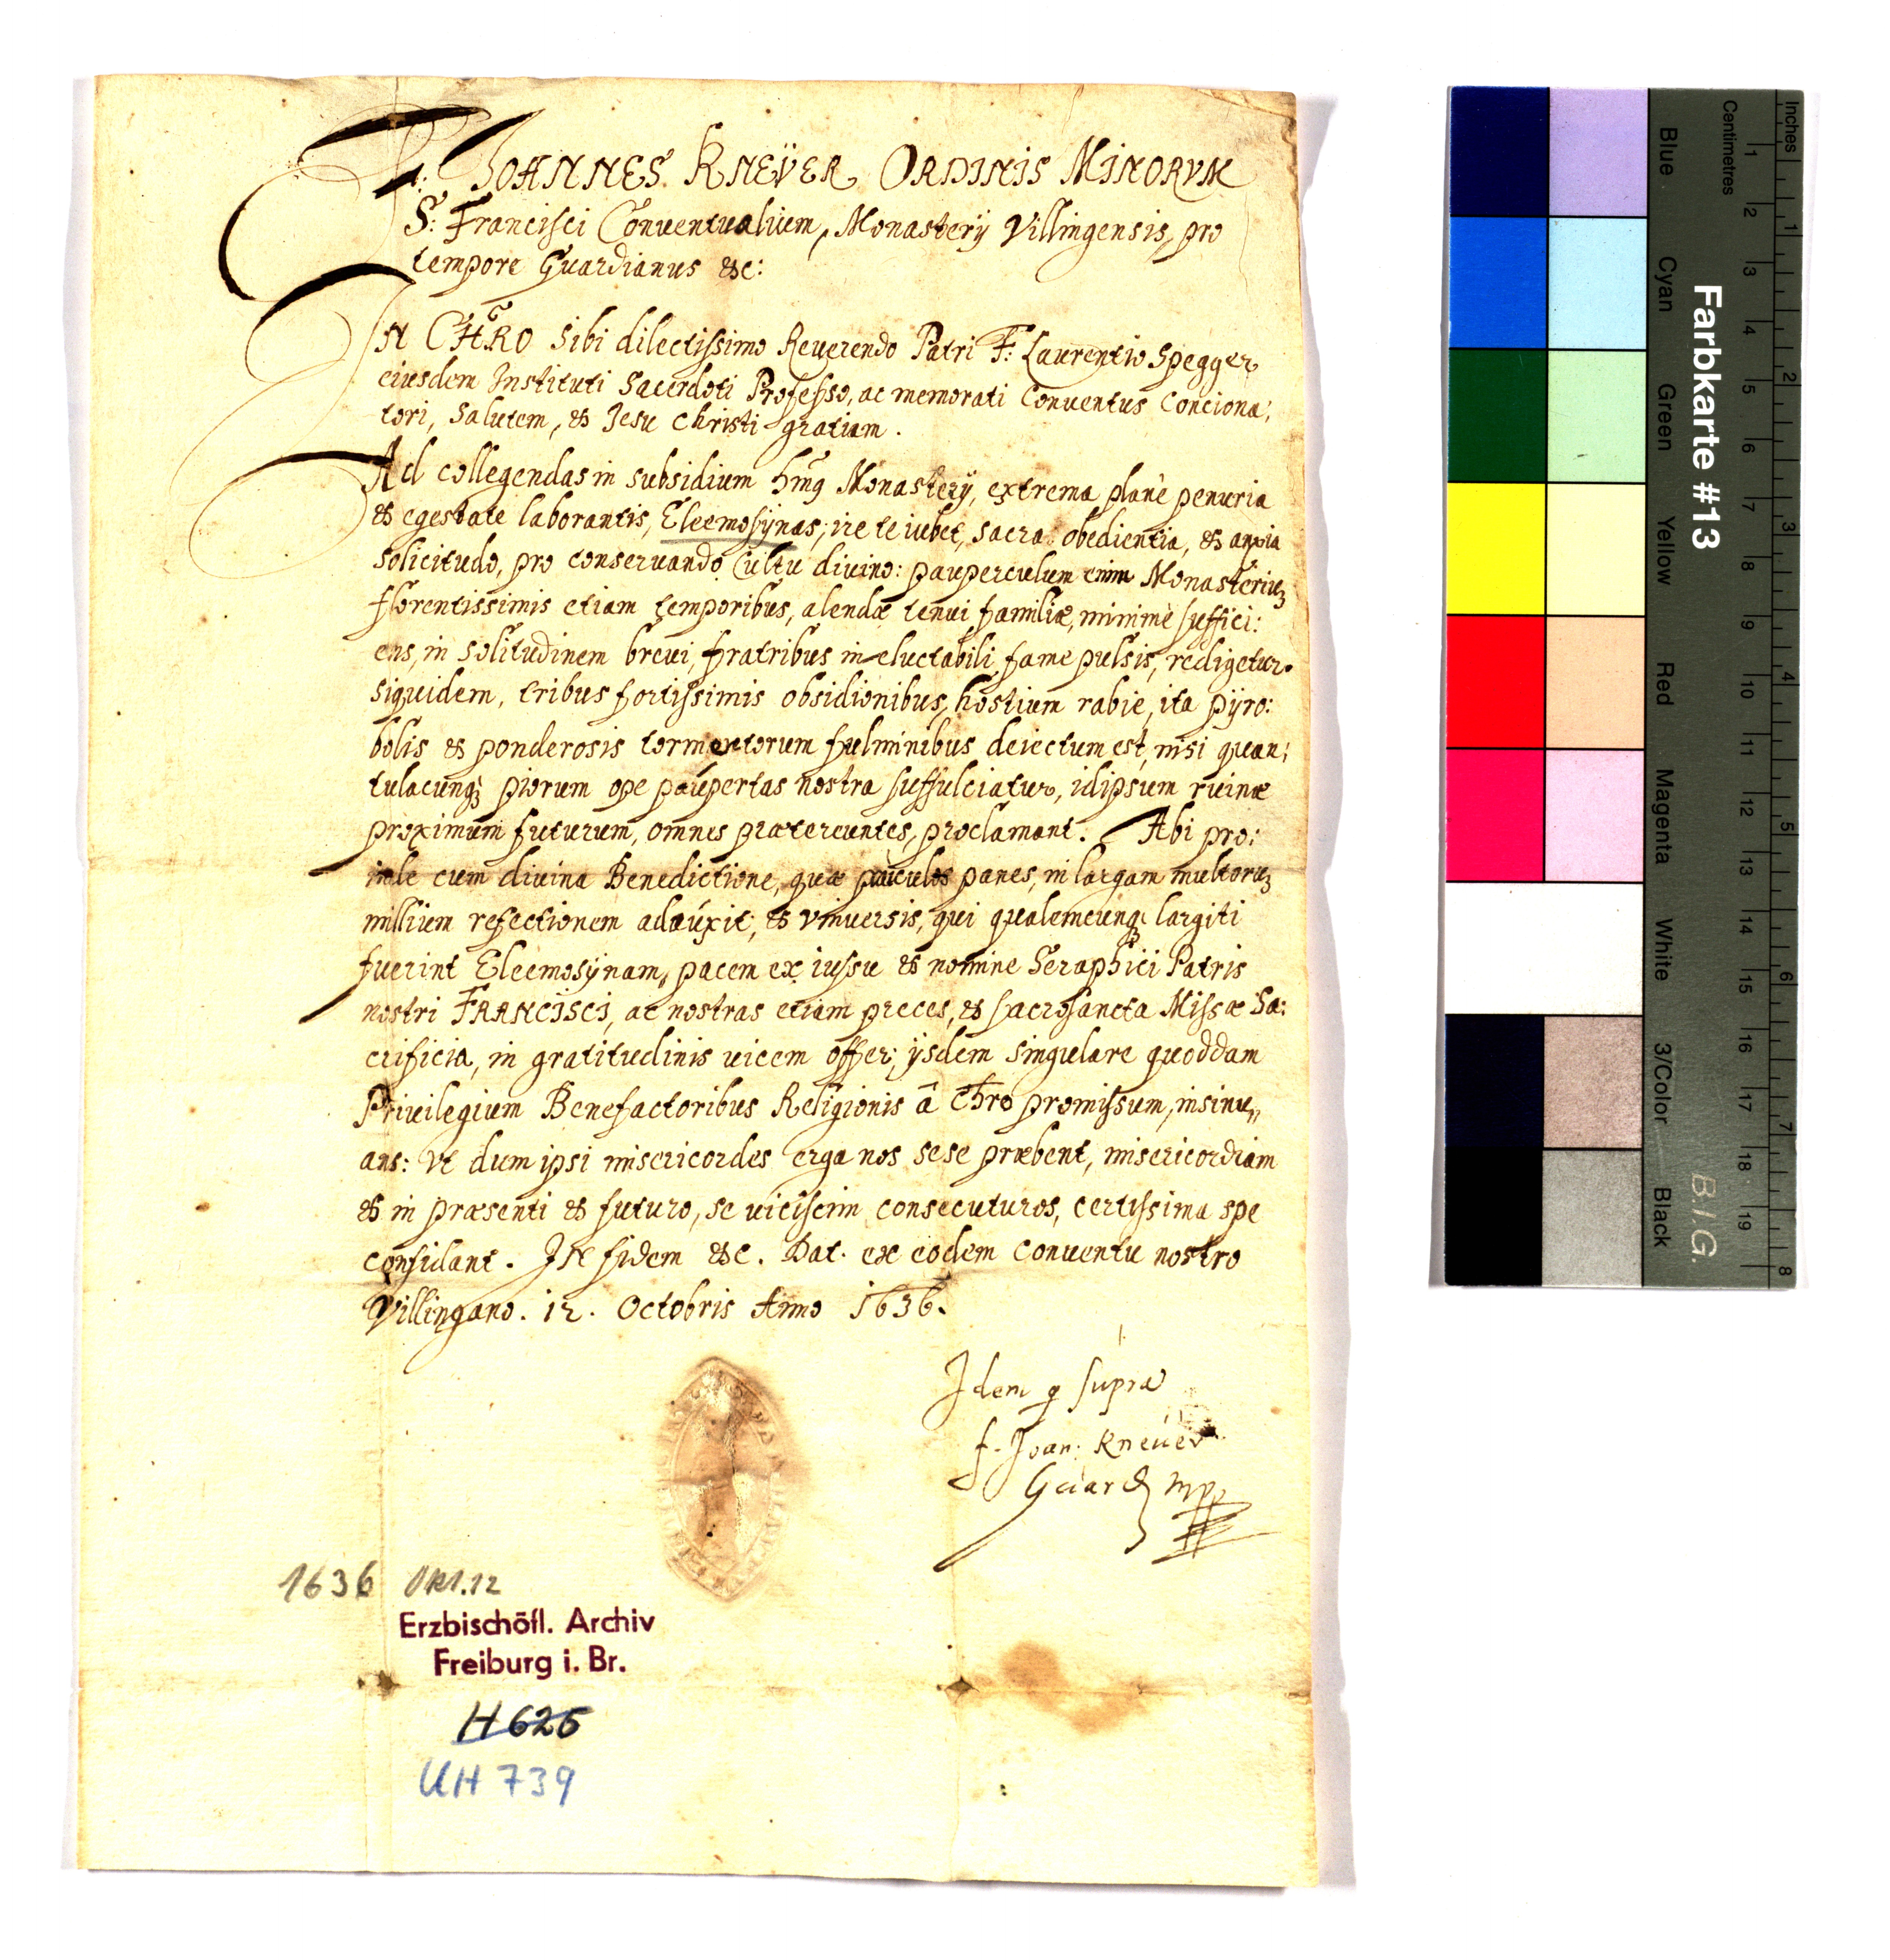 F: JOANNES KNEÿER ORDINIS MINORVM
S: Francisci Conuentualium, Monasterij Villingensis, pro
tempore Guardianus &c:
IN CHRO Sibi dilectissimo Reuerendo Patri F: Laurentio Spegger
eiusdem Instituti Sacerdoti Professo, ac memorati Conuentus Conciona,
tori, Salutem, & Jesu Christi gratiam.
Ad collegendas in subsidium Monasterÿ, extrema planè penuria
& egestate laborantis, Eleemosÿnas, ire te iubet, sacra obedientia, & anxia
solicitudo, pro conseruando Cultu diuino: pauperculum enim Monasteriuȝ
florentissimis etiam temporibus, alendæ tenui familiæ, minimè suffici:
ens, in solitudinem breui, fratribus ineluctabili fame pulsis, redigetur.
siquidem, tribus fortissimis obsidionibus, hostium rabie, ita pÿro:
bolis & ponderosis tormentorum fulminibus deiectum est, nisi quan,
tulacunqȝ piorum ope paupertas nostra suffulciatur, idipsum ruinæ
proximum futurum, omnes prætereuntes, proclamant. Abi pro:
inde cum diuina Benedictione, quæ pauculos panes, in largam multoruȝ
millium refectionem adauxit; & vniuersis, qui qualemcunqȝ largiti
fuerint Eleemosÿnam, pacem ex iussu & nomine Seraphici Patris
nostri FRANCISCI, ac nostras etiam preces, & sacrosancta Missæ Sa:
crificia, in gratitudinis uicem offer; ijsdem singulare quoddam
Priuilegium Benefactoribus Religionis â Chro promissum, insinu,,
ans: Vt dum ipsi misericordes erga nos sese præbent, misericordiam
& in præsenti & futuro, se uicissim consecuturos, certissima spe
confidant. IN fidem &c. Dat. ex eodem Conuentu nostro
Villingano. 12. Octobris Anno 1636.
Idem q supra
f. Joan: Kneüer
Guard mpp
1636 Okt. 12
Erzbischöfl. Archiv
Freiburg i. Br.
H 625
UH 739
Inches
Centimetres
1 2 3 4 5 6 7 8 9 10 11 12 13 14 15 16 17 18 19
1 2 3 4 5 6 7 8
Farbkarte #13
B.I.G.
Blue
Cyan
Green
Yellow
Red
Magenta
White
3/Color
Black